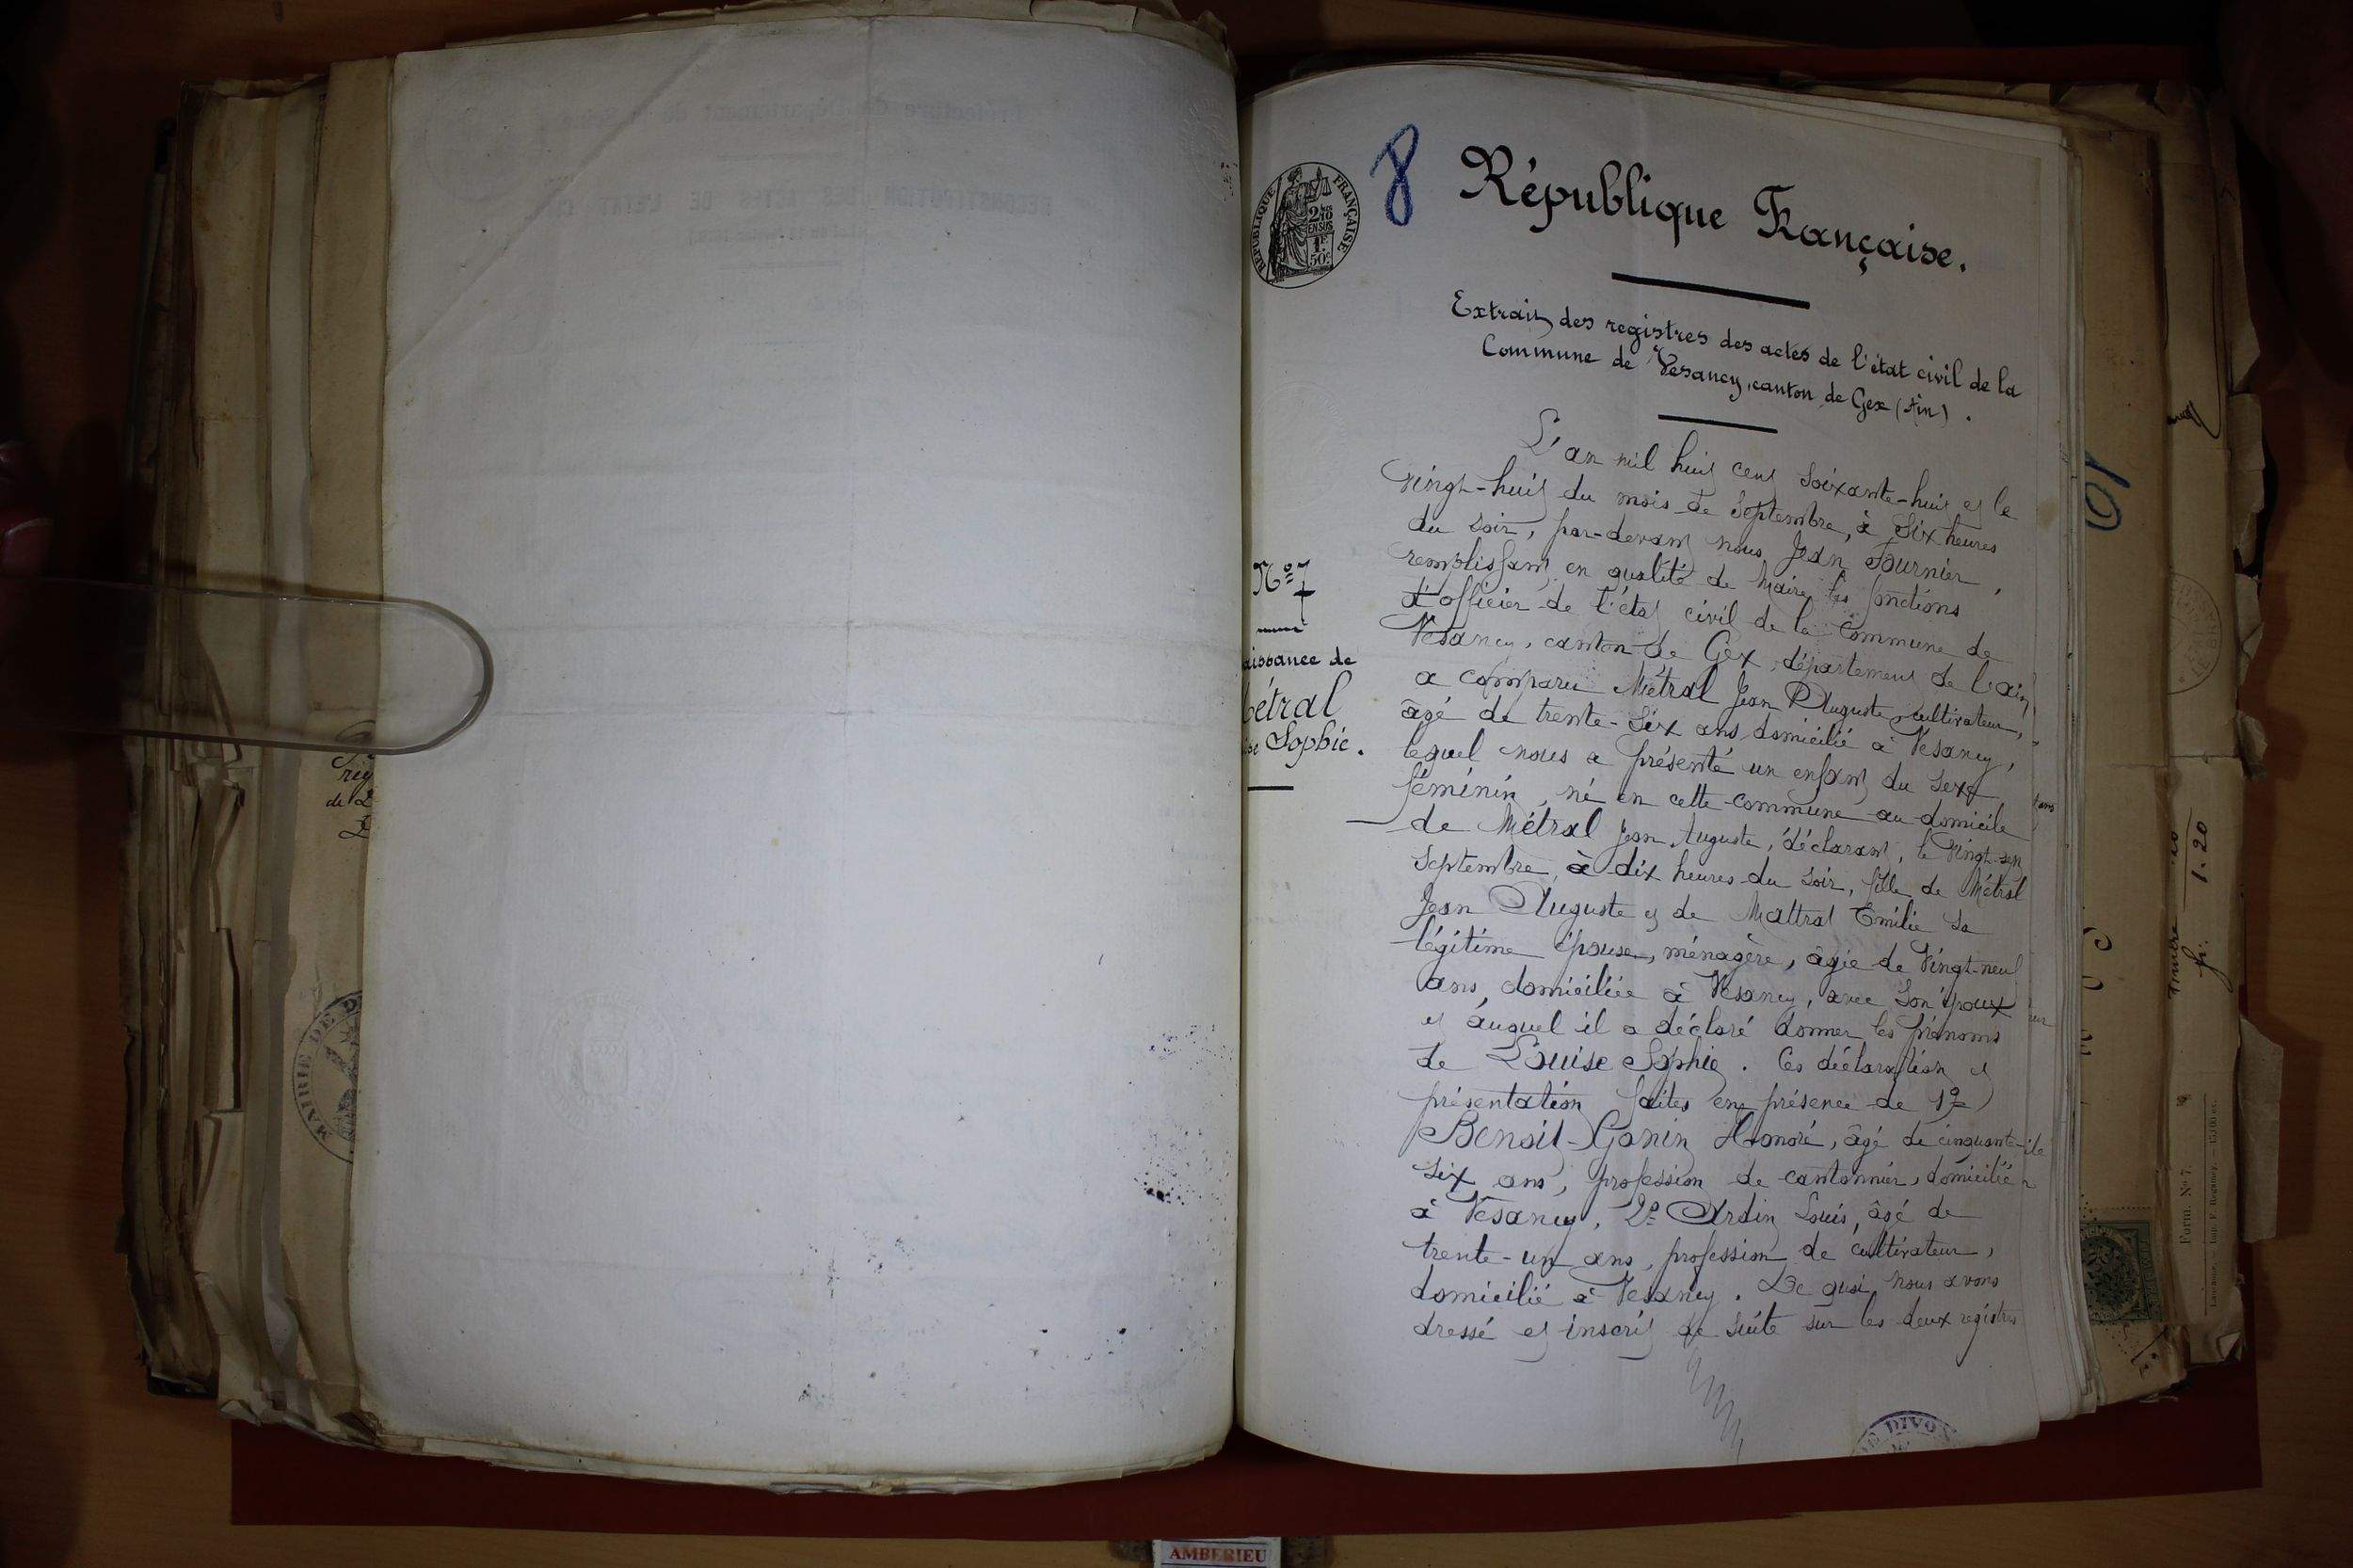 8
République Française.
RÉPUBLIQUE FRANÇAISE
2/10
EN SUS
1F
50c
Extrait des registres des actes de l'état civil de la
Commune de Vesancy, canton de Gex (Ain).
N° 7
aissance de
étral
se Sophie.
L'an mil huit cent soixante-huit et le
vingt-huit du mois de Septembre, à Six heures
du soir, par-devant nous Jean Fournier,
remplissant en qualité de Maire les fonctions
d'officier de l'état civil de la Commune de
Vesancy, canton de Gex, département de l'ain,
a comparu Métral Jean Auguste, cultivateur,
âgé de trente-six ans, domicilié à Vesancy,
lequel nous a présenté un enfant du sexe
féminin, né en cette commune au domicile
de Métral Jean Auguste, déclarant, le vingt-sep
Septembre, à dix heures du soir, fille de Métral
Jean Auguste et de Mattral Emilie sa
légitime épouse, ménagère, âgée de vingt-neuf
ans, domiciliée à Vesancy, avec son époux
et auquel il a déclaré donner les prénoms
de Louise Sophie. Ces déclaration et
présentation faites en présence de 1°
Benoit-Gonin Honoré, âgé de cinquante-
six ans, profession de cantonnier, domicilié
à Vesancy, 2° Ardin Louis, âgé de
trente-un ans, profession de cultivateur,
domicilié à Vesancy. De quoi nous avons
dressé et inscrit de suite sur les deux registres
DIVO
MAIRIE DE D
reg
de L
10
1.20
Form. N° 7.
AMBERIEU